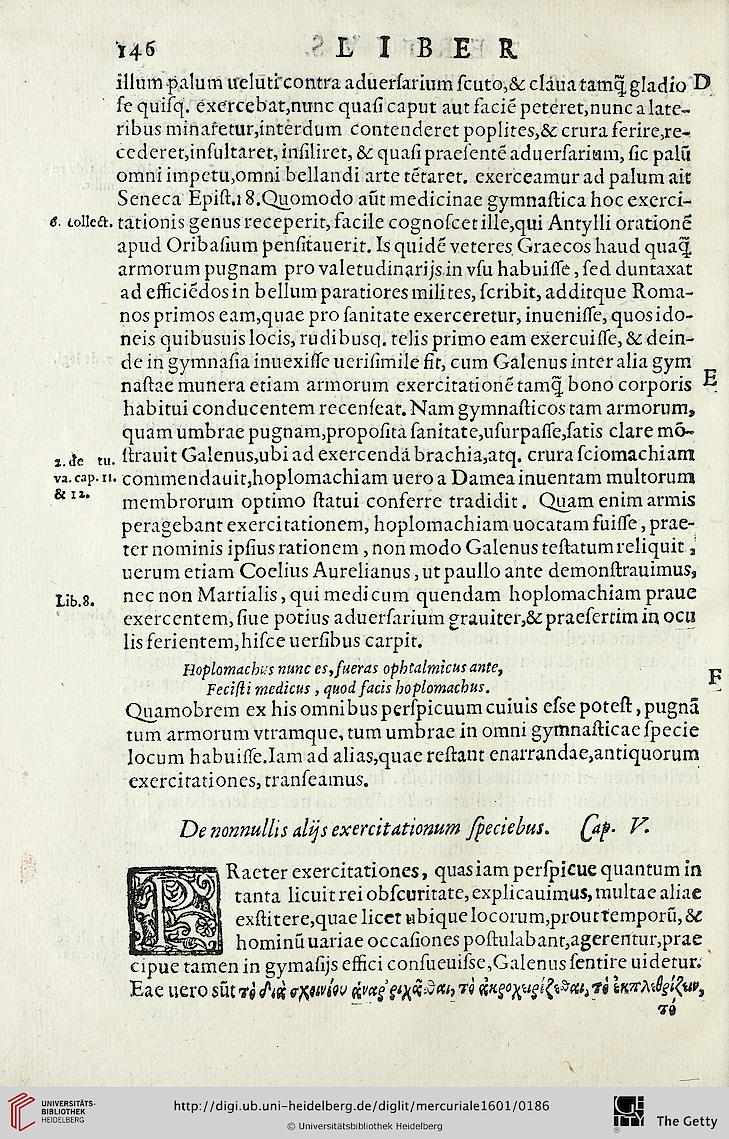 146 L I B E R
illum palum ueluti contra aduerſarium ſcuto,& claua tamq̃ gladio D
ſe quiſq. exercebat,nunc quaſi caput aut faciẽ peteret,nunc a late-
ribus minaretur,interdum contenderet poplites,& crura ferire,re-
cederet,inſultaret, inſiliret, & quaſi praeſentẽ aduerſarium, ſic palũ
omni impetu,omni bellandi arte tẽtaret. exerceamur ad palum ait
Seneca Epiſt.18.Quomodo aũt medicinae gymnaſtica hoc exerci-
6. collect. tationis genus receperit, facile cognoſcet ille,qui Antylli orationẽ
apud Oribaſium penſitauerit. Is quidẽ veteres Graecos haud quaq̃
armorum pugnam pro valetudinarijs in vſu habuiſſe, ſed duntaxat
ad efficiẽdos in bellum paratiores milites, ſcribit, additque Roma-
nos primos eam,quae pro ſanitate exerceretur, inueniſſe, quos ido-
neis quibusuis locis, rudibusq. telis primo eam exercuiſſe, & dein-
de in gymnaſia inuexiſſe ueriſimile ſit, cum Galenus inter alia gym
naſtae munera etiam armorum exercitationẽ tamq̃ bono corporis E
habitui conducentem recenſeat. Nam gymnaſticos tam armorum,
quam umbrae pugnam,propoſita ſanitate,uſurpaſſe,ſatis clare mõ-
2. de tu. ſtrauit Galenus,ubi ad exercendã brachia,atq. crura ſciomachiam
va. cap. 11. commendauit,hoplomachiam uero a Damea inuentam multorum
& 12. membrorum optimo ſtatui conferre tradidit. Quam enim armis
peragebant exercitationem, hoplomachiam uocatam fuiſſe, prae-
ter nominis ipſius rationem, non modo Galenus teſtatum reliquit,
uerum etiam Coelius Aurelianus, ut paullo ante demonſtrauimus,
Lib.8. nec non Martialis, qui medicum quendam hoplomachiam praue
exercentem, ſiue potius aduerſarium grauiter,& praeſertim in ocu
lis ferientem,hiſce uerſibus carpit.
Hoplomachus nunc es, fueras ophtalmicus ante,
Feciſti medicus, quod facis hoplomachus. F
Quamobrem ex his omnibus perſpicuum cuiuis eſse poteſt, pugnã
tum armorum vtramque, tum umbrae in omni gymnaſticae ſpecie
locum habuiſſe.Iam ad alias,quae reſtant enarrandae,antiquorum
exercitationes, tranſeamus.
De nonnullis alijs exercitationum ſpeciebus. Cap. V.
PRaeter exercitationes, quas iam perſpicue quantum in
tanta licuit rei obſcuritate, explicauimus, multae aliae
exſtitere,quae licet ubique locorum,prout temporũ, &
hominũ uariae occaſiones poſtulabant,agerentur,prae
cipue tamen in gymaſijs effici conſueuiſse,Galenus ſentire uidetur.
Eae uero sũt τὸ διὰ σχοινίου ἀναῤῥιχᾶσθαι, τὸ ἀκροχειρίζεσθαι, τὸ ἐκπλεθρίζειν,
τὸ
UNIVERSITÄTS-
BIBLIOTHEK
HEIDELBERG
http://digi.ub.uni-heidelberg.de/diglit/mercuriale1601/0186
© Universitätsbibliothek Heidelberg
The Getty